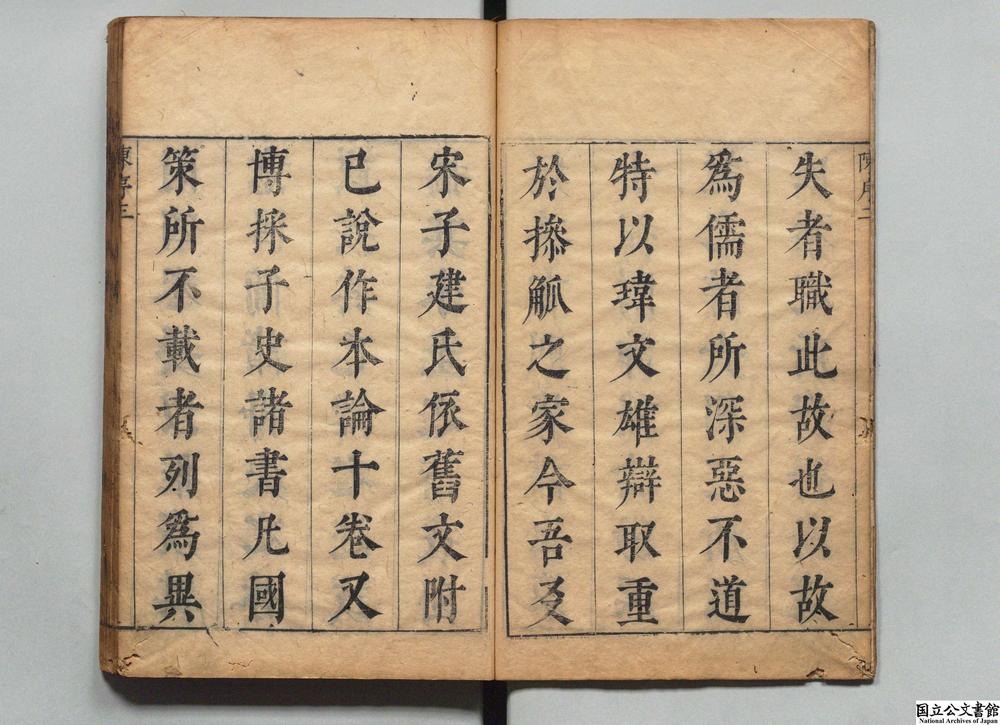 失者職此故也以故
爲儒者所深惡不道
特以瑋文雄辯取重
於摻觚之家今吾友
宋子建氏依舊文附
已說作本論十卷又
博採子史諸書凡國
策所不載者列爲異
陳序三
国立公文書館
National Archives of Japan